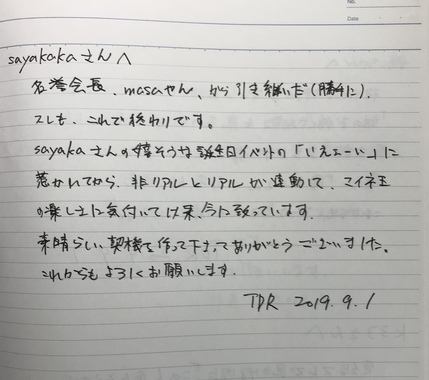 No.
Date
sayakakaさんへ
名誉会長、masaやん、から引き継いだ(勝手に)、
コレも、これで終わりです。
sayakaさんの嬉そうな誕生日イベントの「いえぇーい」に
惹かれてから、非リアルとリアルが連動して、マイネ王
の楽しさに気付いて以来、今に致っています。
素晴らしい契機を作って下さってありがとうございました。
これからもよろしくお願いします。
TDR 2019.9.1